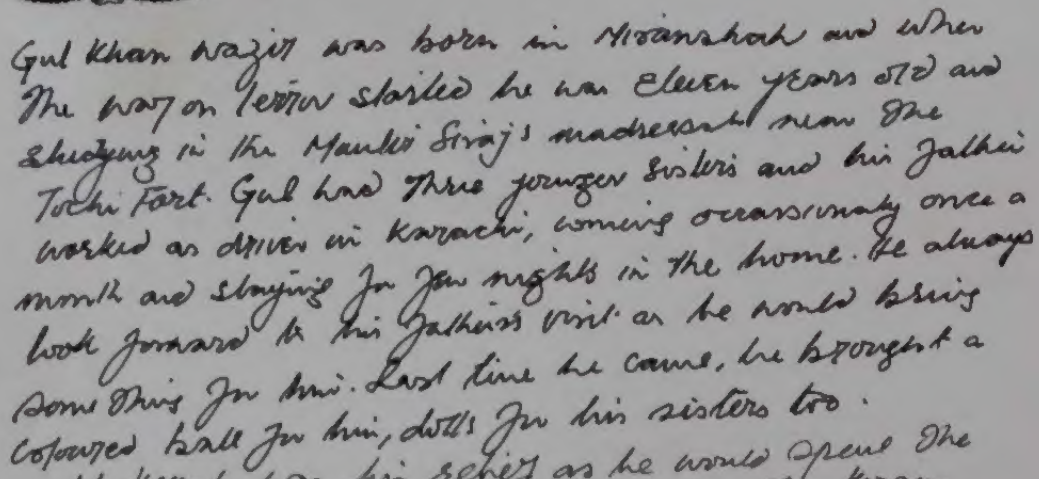 Gul Khan Wazir was born in Miranshah and when
The war on terror started he was eleven years old and
studying in the Maulvi Siraj's madressah near The
Tochi Fort. Gul had Three younger sisters and his father
worked as driver in Karachi, coming occassionaly once a
month and staying for few nights in the home. He always
look forward to his father's visit as he would bring
some Thing for him. Last time he came, he brought a
coloured ball for him, dolls for his sisters too.
his as he would spend The